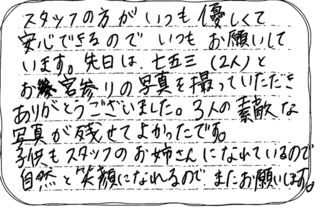 スタッフの方がいつも優しくて
安心できるので いつも お願いして
います。先日は、七五三(2人)と
お宮参りの写真を撮っていただき
ありがとうございました。3人の素敵な
写真が残せてよかったです。
子供もスタッフのお姉さんになれているので
自然と笑顔になれるので またお願いします。